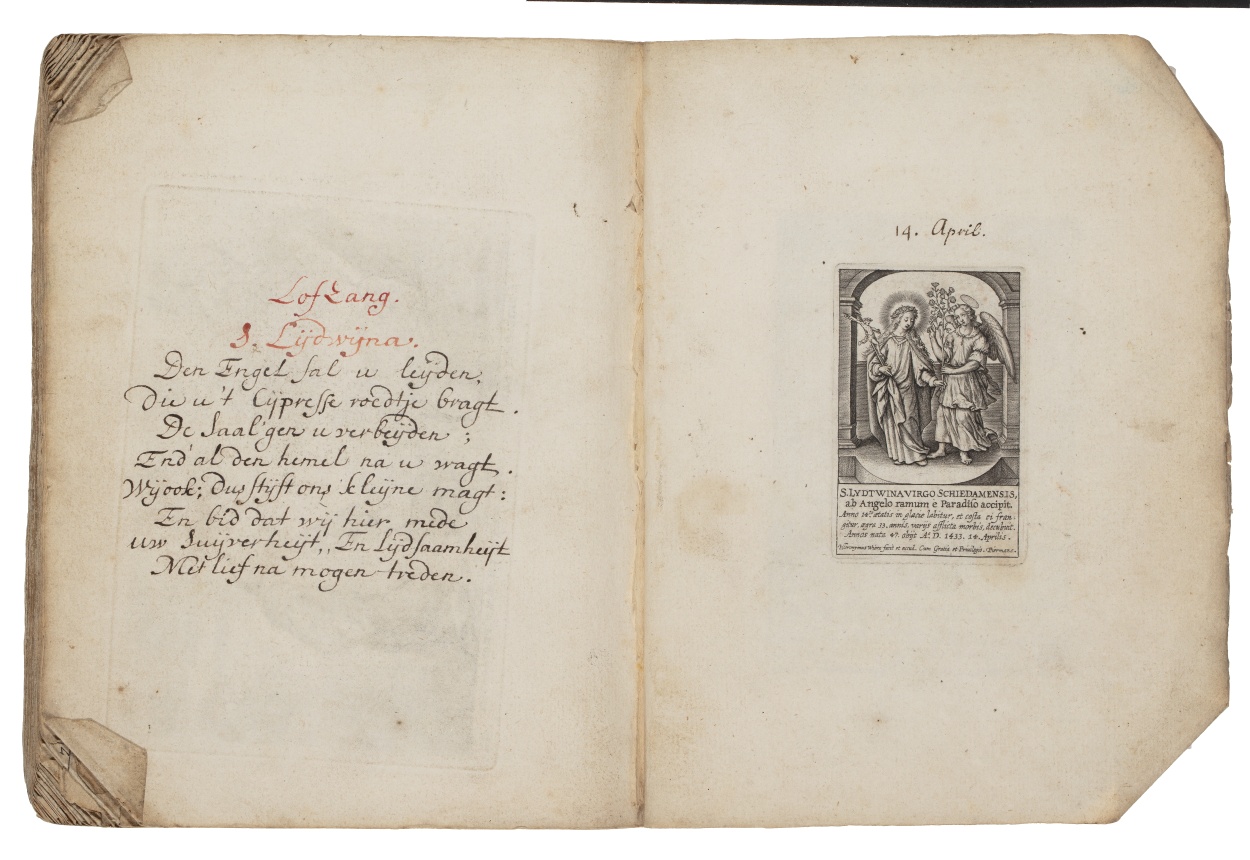 Lof Zang.
S. Lijdwijna.
Den Engel sal u leijden,
Die u 't Cijpresse roedtje bragt.
De Saal'gen u verbeijden;
End' al den hemel na u wagt.
Wij ook; Dus stijft ons kleijne magt:
En bid dat wij hier mede
uw Suijverheijt, En Lijdsaamheijt
Met lief na mogen treden.
14. April.
S. LYDTWINA VIRGO SCHIEDAMENSIS,
ab Angelo ramum e Paradiso accipit.
Anno 14.º ætatis in glacie labitur, et costa ei fran-
gitur, ægra 33. annis, varijs afflicta morbis, decubuit.
Annos nata 47. obijt Aº. D. 1433. 14. Aprilis.
Hieronymus Wierx fecit et excud. Cum Gratia et Privilegio. Piermans.